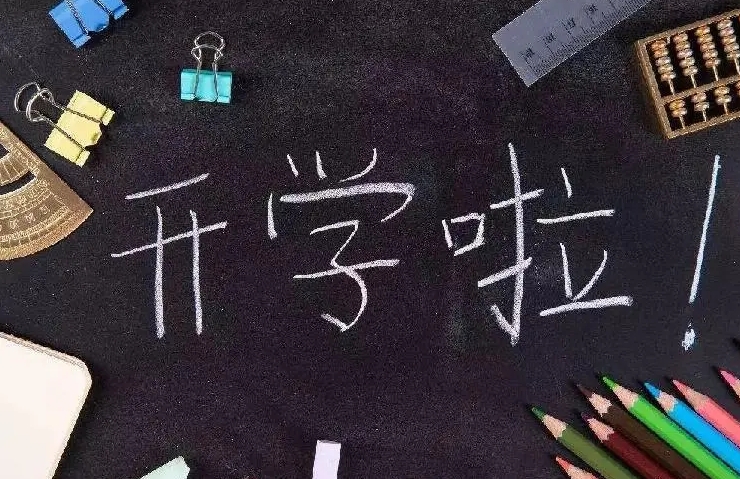 开学啦！